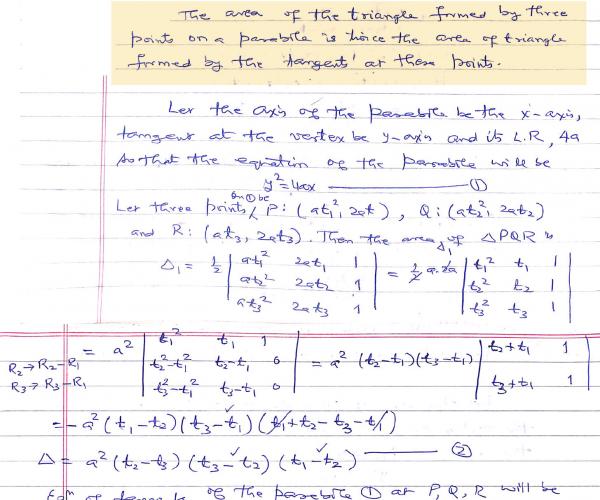 The area of the triangle frmed by three
points on a parabile is twice the area of triangle
frmed by the tangents at those points.
Let the axis of the parabile be the x-axis,
tangent at the vertex be y-axis and its L.R, 4a
so that the equation of the parabile will be
y²=4ax ——— ①
Let three points on ① be P: (at₁², 2at), Q: (at₂², 2at₂)
and R: (at₃, 2at₃). Then the area △₁ of △PQR is
△₁ = 1/2 | at₁² 2at₁ 1 | = 1/2 a.2a | t₁² t₁ 1 |
| at₂² 2at₂ 1 | | t₂² t₂ 1 |
| at₃² 2at₃ 1 | | t₃² t₃ 1 |
= a² | t₁² t₁ 1 | = a² (t₂-t₁)(t₃-t₁) | t₂+t₁ 1 |
R₂→R₂-R₁ | t₂²-t₁² t₂-t₁ 0 |
R₃→R₃-R₁ | t₃²-t₁² t₃-t₁ 0 | | t₃+t₁ 1 |
= -a² (t₁-t₂)(t₃-t₁)(t₁+t₂-t₃-t₁)
△ = a² (t₂-t₃)(t₃-t₂)(t₁-t₂) ——— ②
of the parabile ① at P, Q, R will be